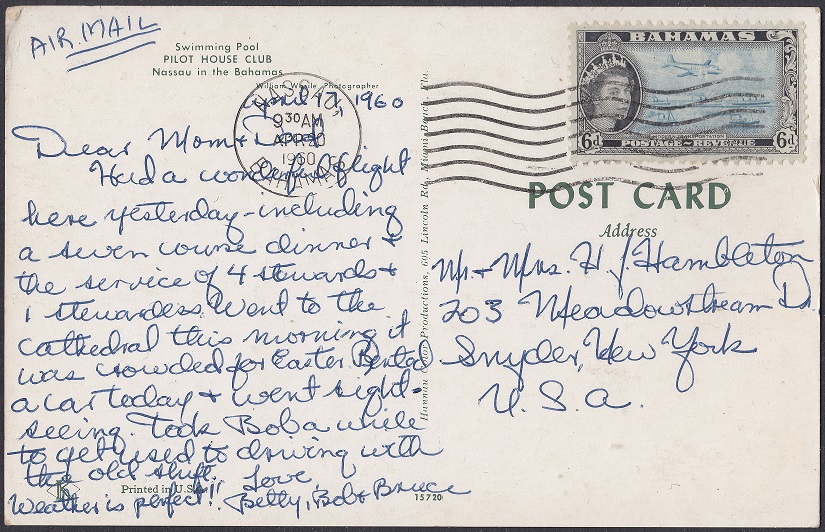 AIR MAIL
Swimming Pool
PILOT HOUSE CLUB
Nassau in the Bahamas
William Wirile Photographer
April 17, 1960
Dear Mom & Dad,
Had a wonderful flight
here yesterday - including
a seven course dinner &
the service of 4 stewards &
1 stewardess. Went to the
cathedral this morning it
was crowded for Easter. Rented
a car today & went sight-
seeing. Took Bob a while
to get used to driving with
the old stuff. Love,
Weather is perfect!! Betty, Bob & Bruce
Printed in U.S.A.
15720
Hannau Color Productions, 605 Lincoln Rd., Miami Beach, Fla.
NASSAU
9 30 AM
APR 20
1960
BAHAMAS
BAHAMAS
6d
POSTAGE & REVENUE
6d
POST CARD
Address
Mr. & Mrs. H. J. Hambleton
203 Meadowstream Dr.
Snyder, New York
U.S.A.